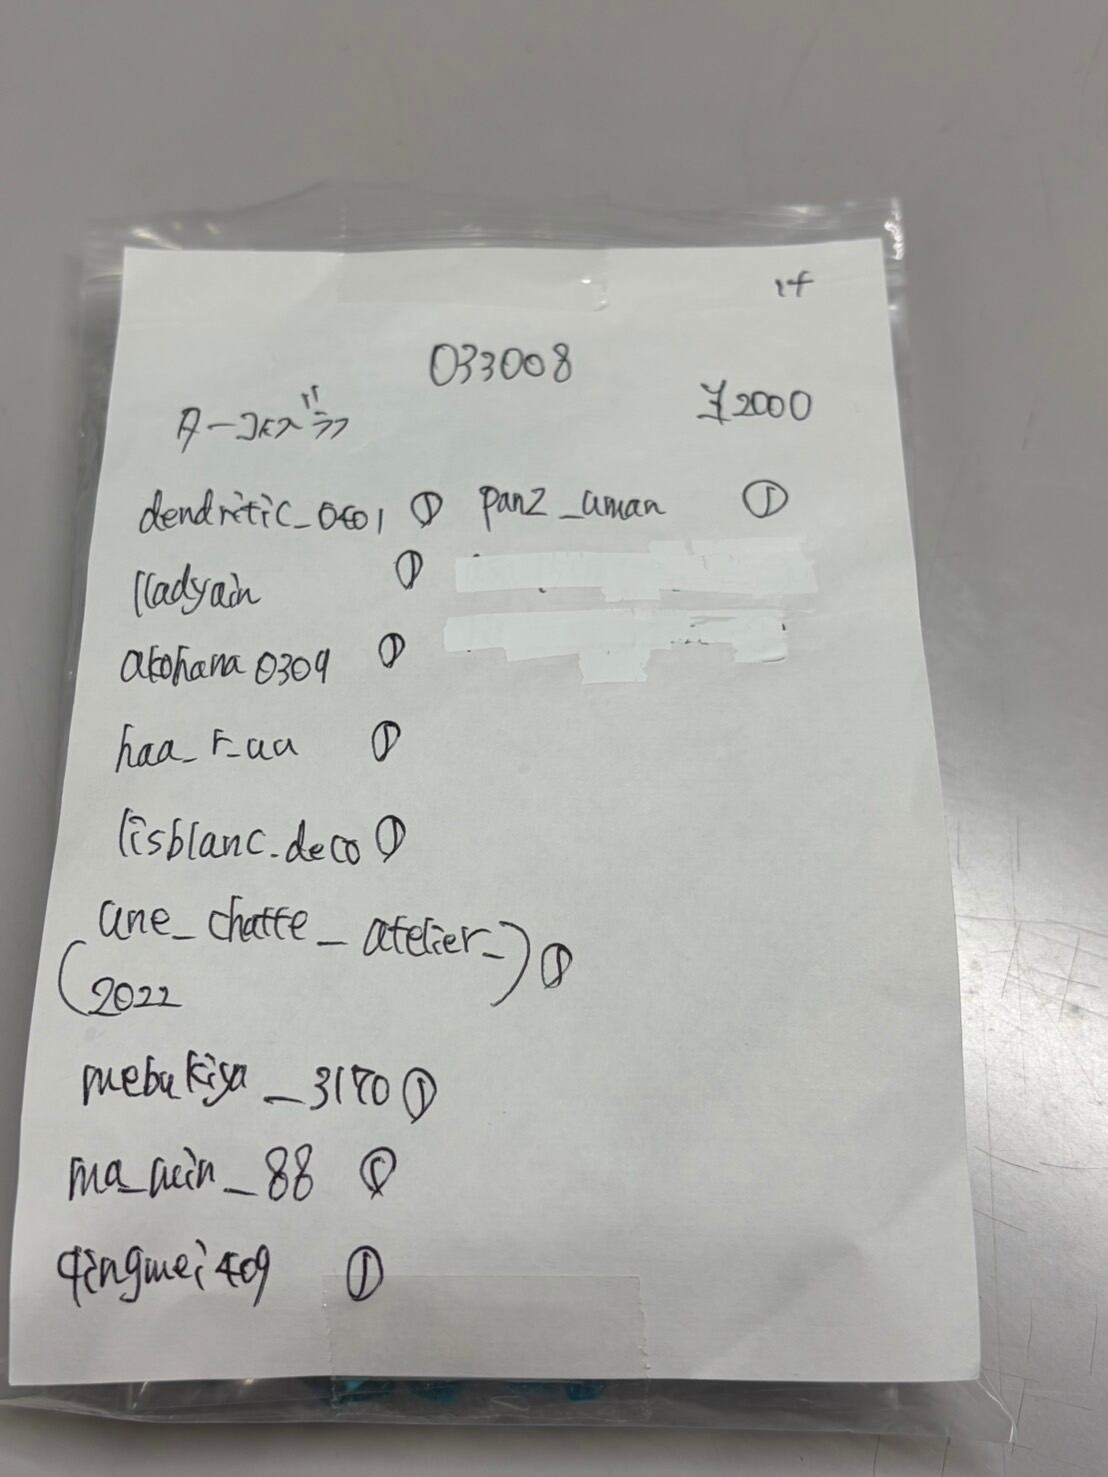 1f
033008
ターコイズ ¥2000
dendritic_0401 ① panz_uman ①
lladyain ①
akohana0309 ①
haa_r_aa ①
lisblanc.deco ①
(une_chatte_atelier_
2022) ①
mebukiya_3170 ①
ma_min_88 ①
qingmei409 ①